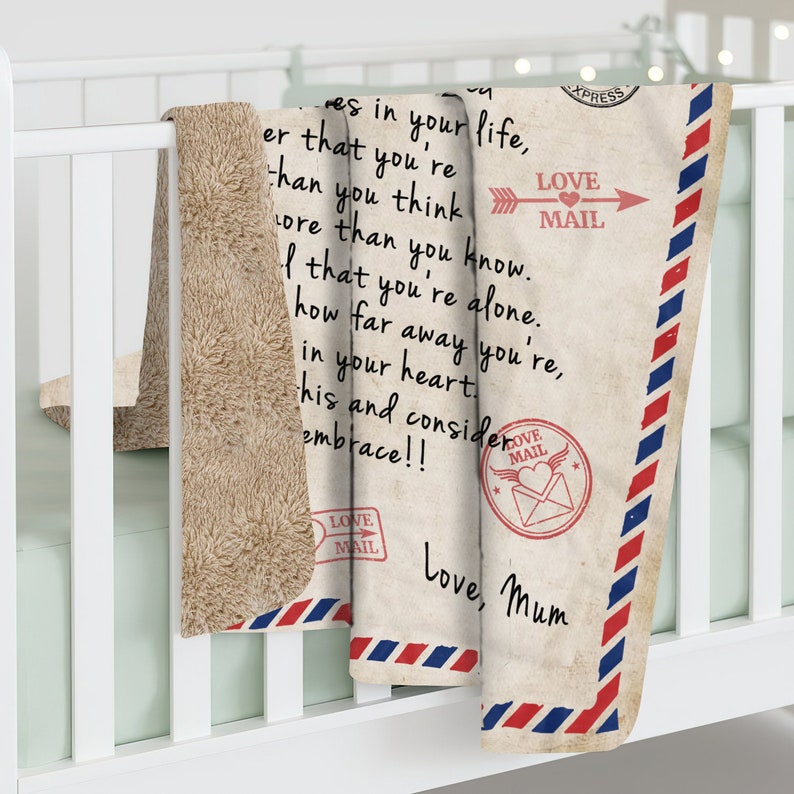 EXPRESS
in your life,
that you're
than you think
more than you know.
that you're alone.
how far away you're,
in your heart.
this and consider
embrace!!
Love, Mum
LOVE
MAIL
LOVE
MAIL
LOVE
MAIL